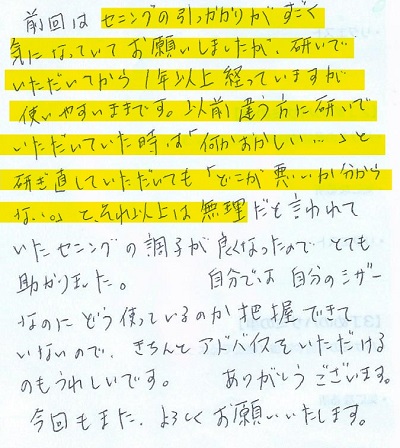 前回は セニングの引っかかりがすごく
気になっていてお願いしましたが、研いで
いただいてから1年以上経っていますが
使いやすいままです。以前違う方に研いで
いただいていた時は「何かおかしい…」と
研ぎ直していただいても「どこが悪いか分から
ない。」と、それ以上は無理だと言われて
いたセニングの調子が良くなったので とても
助かりました。 自分では 自分のシザー
なのにどう使っているのか把握できて
いないので、きちんとアドバイスをいただける
のもうれしいです。 ありがとうございます。
今回もまた、よろしくお願いいたします。